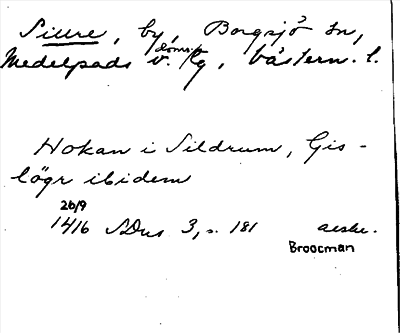 Siure, by, Borgsjö sn,
Medelpads v. doms.sg, Västern. l.
Hokan i Sildrum, Gis-
lögr ibidem
26/9
1416 SDns 3, s. 181 aeskr.
Broocman